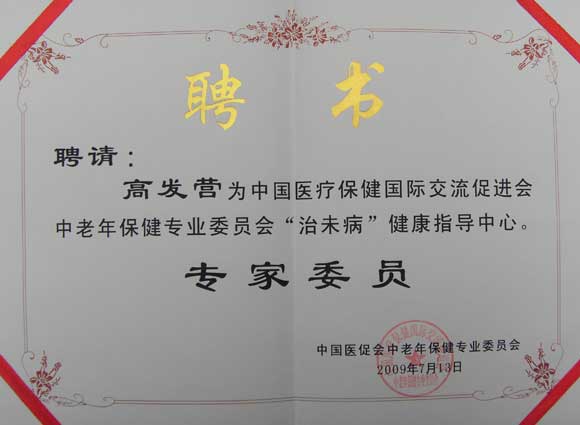 聘书
聘请：
高发营为中国医疗保健国际交流促进会
中老年保健专业委员会“治未病”健康指导中心。
专家委员
中国医促会中老年保健专业委员会
2009年7月13日